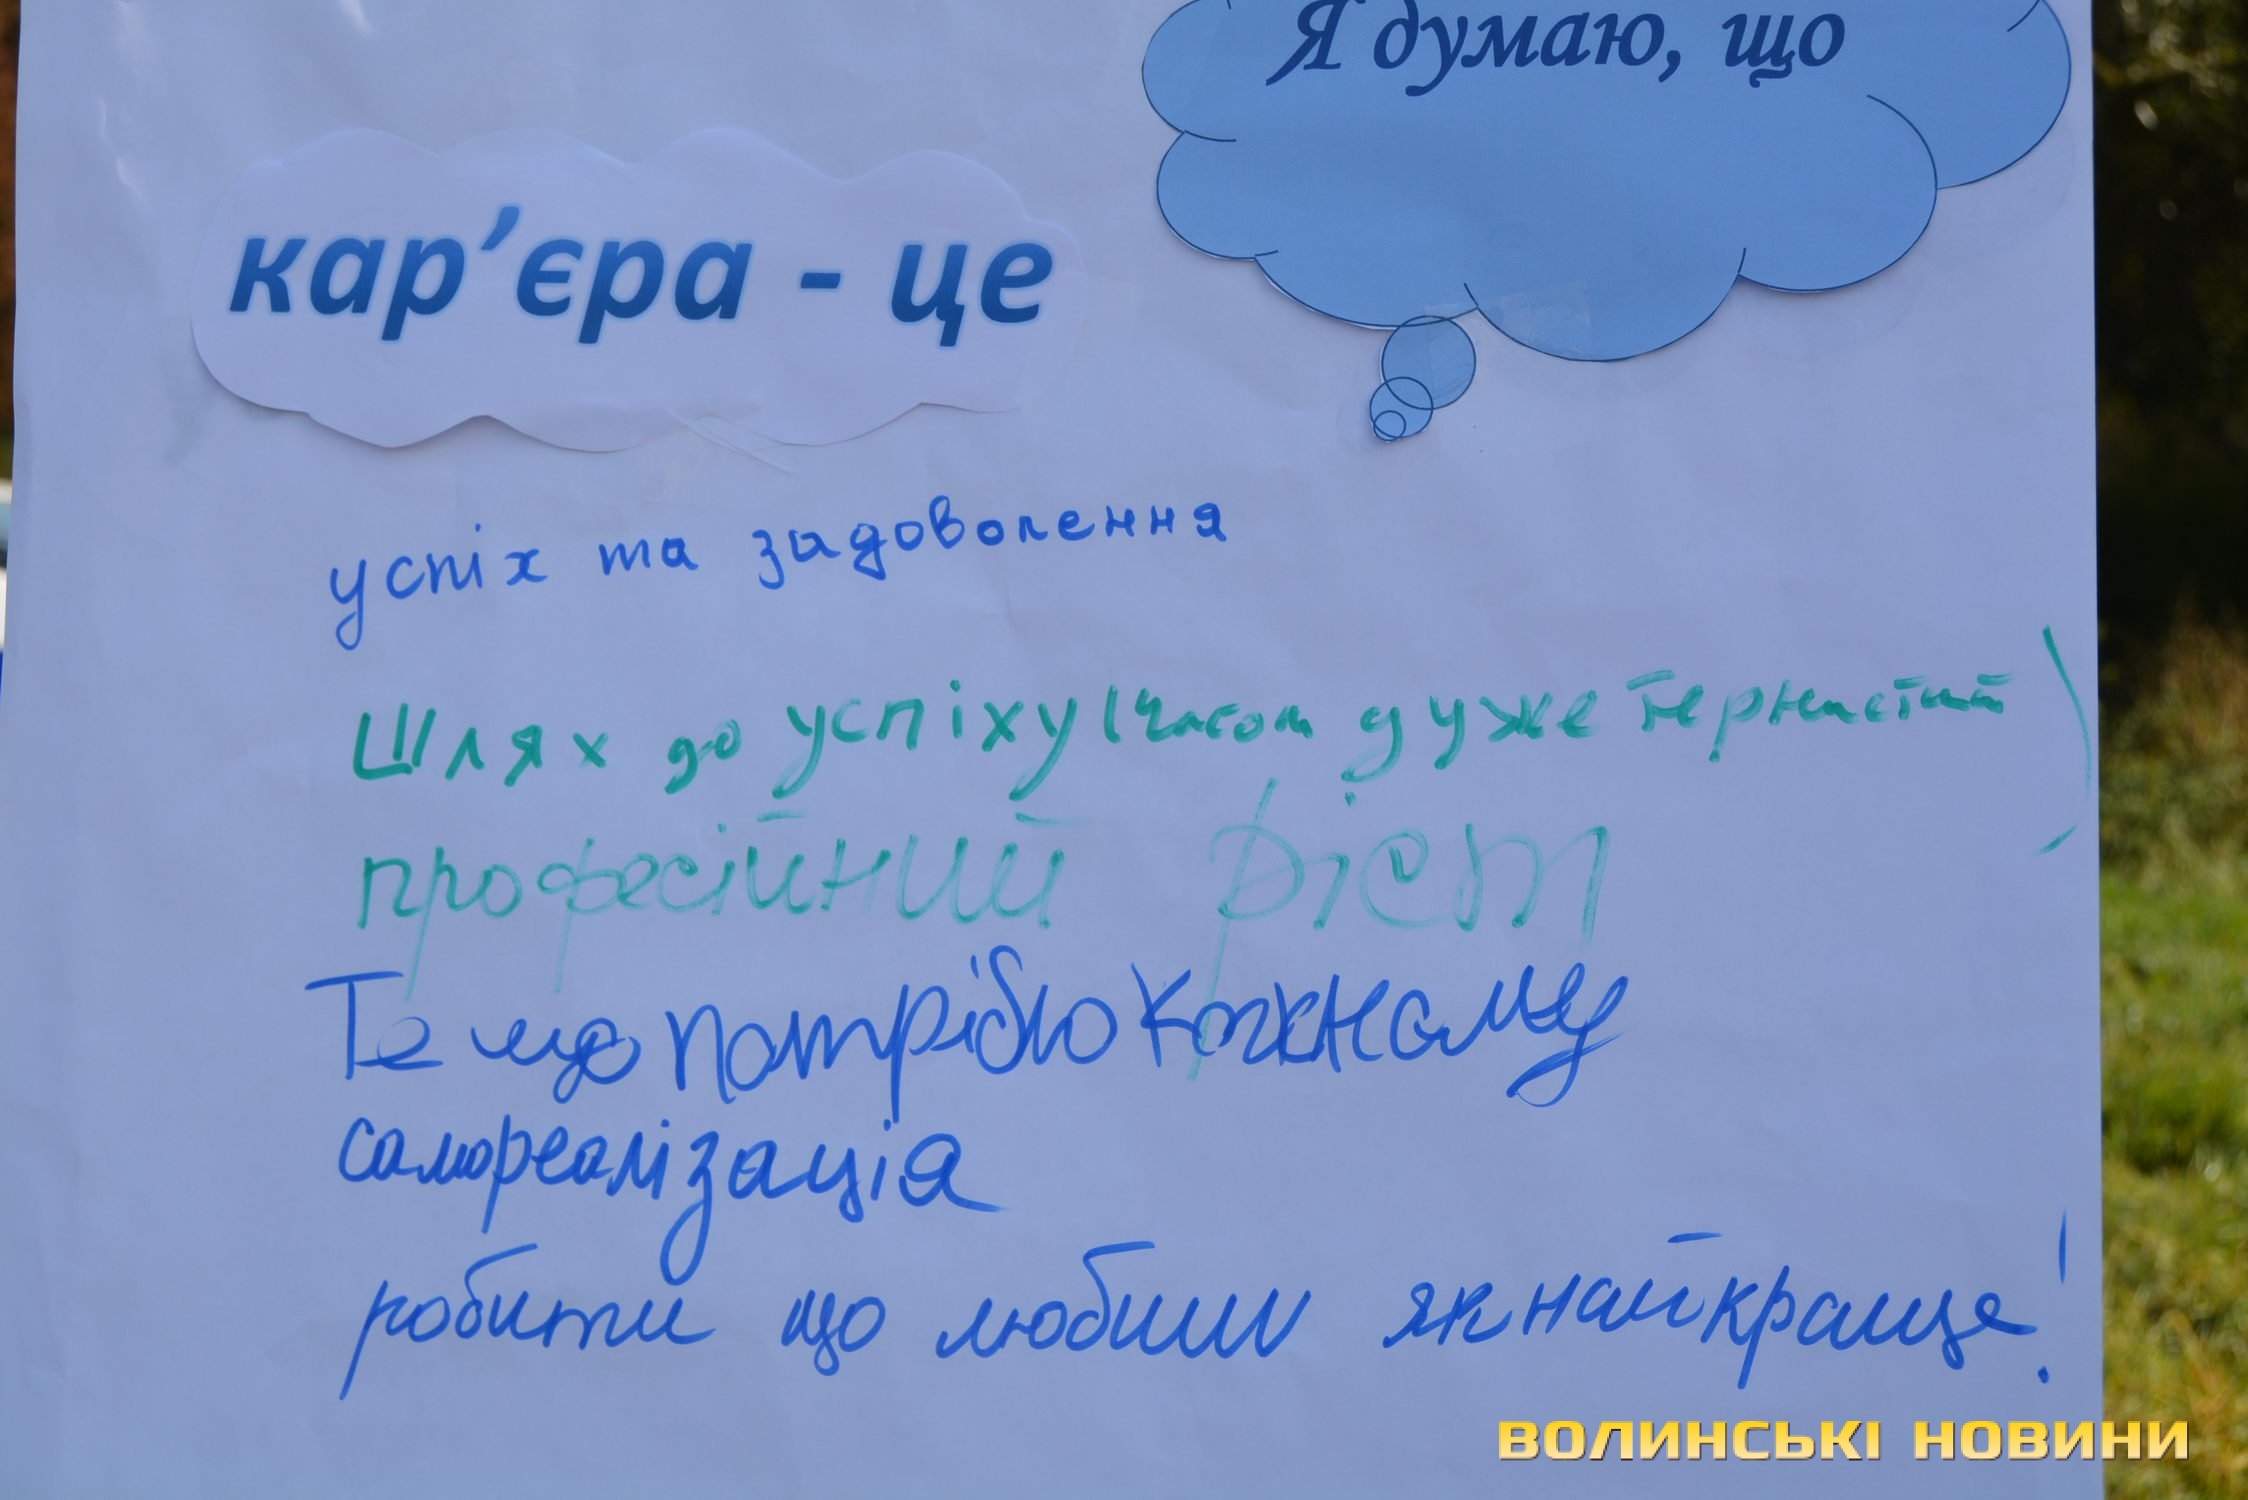 Я думаю, що
кар'єра - це
успіх та задоволення
Шлях до успіху (часом дуже тернистий)
професійний ріст
Те що потрібно кожному
самореалізація
робити що любиш якнайкраще!
ВОЛИНСЬКІ НОВИНИ